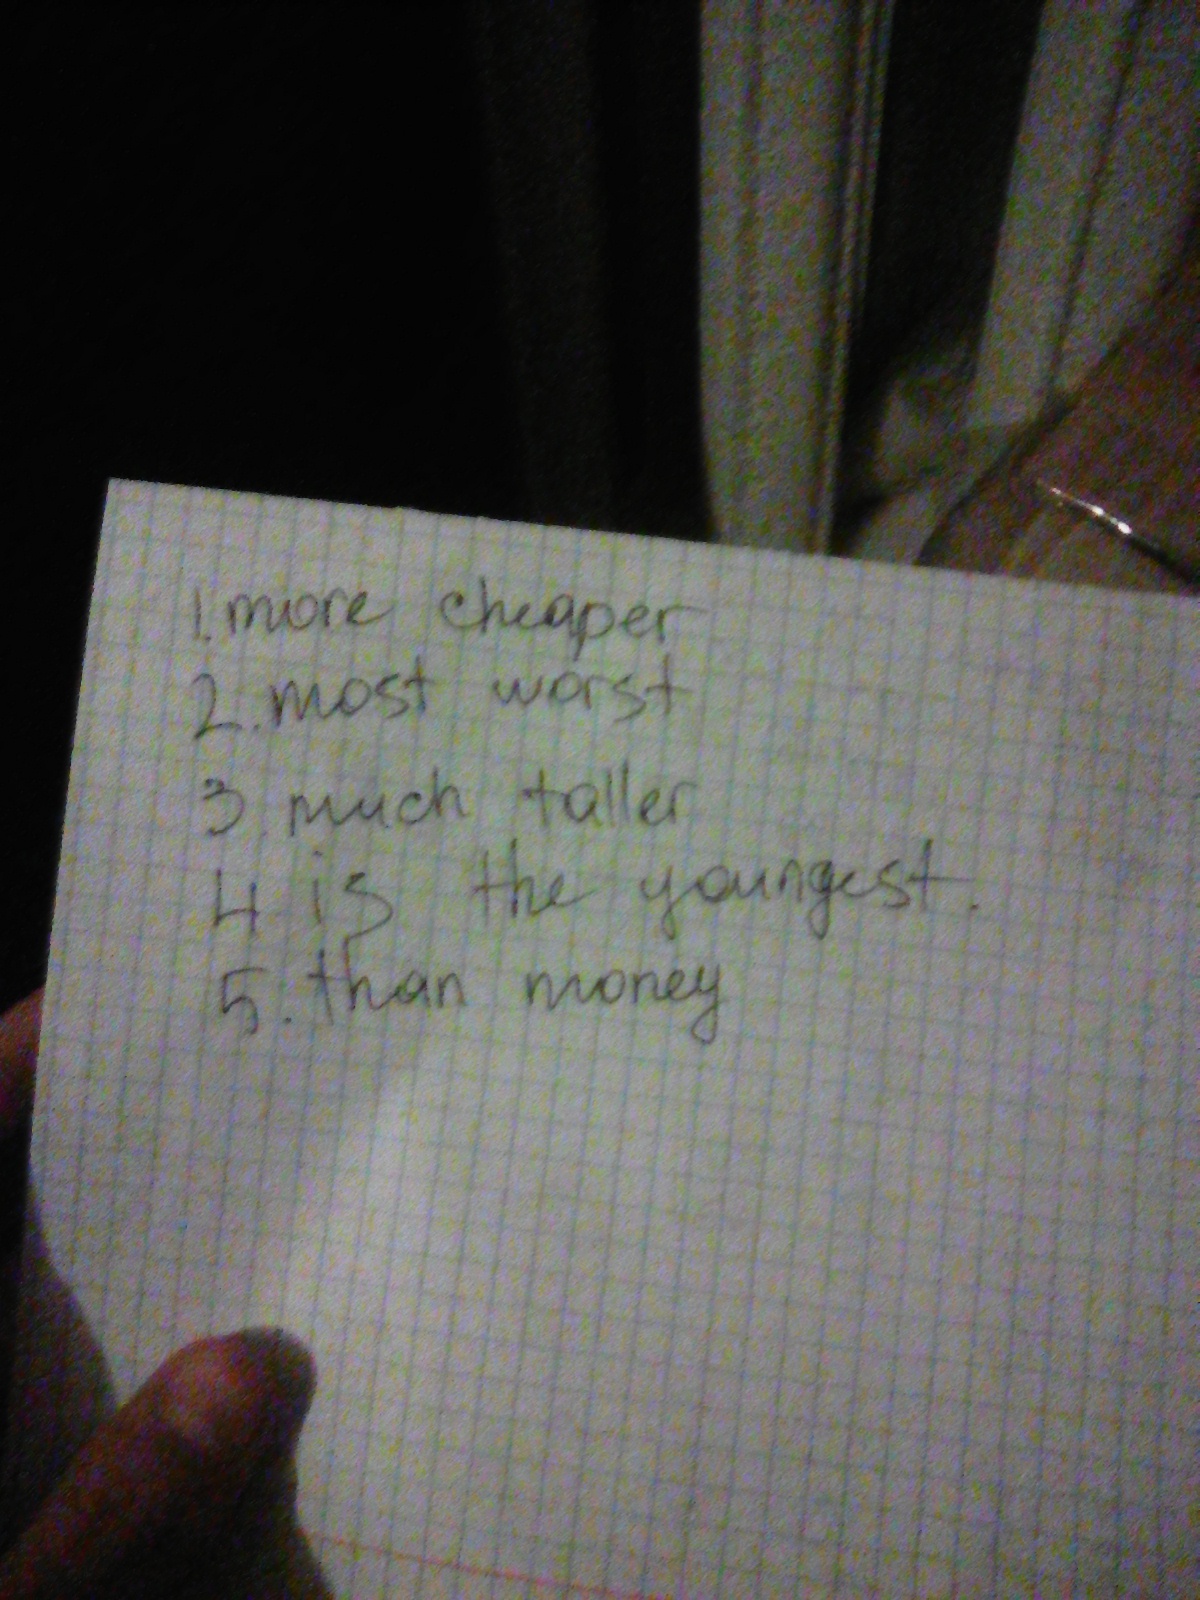 1. more cheaper
2. most worst
3. much taller
4 is the youngest.
5. than money